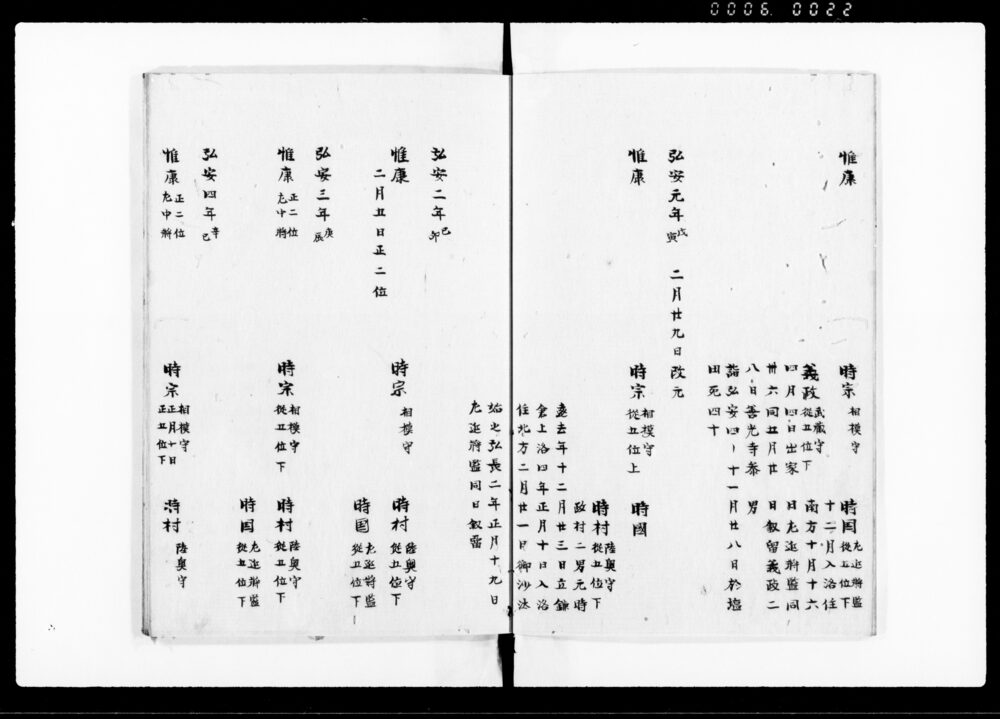 0006 0022
惟康
時宗 相模守
時国 左近将監 従五位下
義政 武蔵守 従五位下
十二月入洛住
四月四日出家
南方十月十六
卅六同五月廿
日左近将監同
八日善光寺参
日叙留義政二
男
詣弘安四ー十一月廿八日於塩
田死四十
弘安元年 戊寅 二月廿九日改元
惟康
時宗 相模守 従五位上
時國
時村 陸奥守 従五位下
政村二男元時
遠去年十二月廿三日立鎌
倉上洛四年正月十日入洛
住北方二月廿一日御沙汰
始之弘長二年正月十九日
左近将監同日叙留
弘安二年 己卯
惟康
時宗 相模守
時村 陸奥守 従五位下
二月五日正二位
時國 左近将監 従五位下
弘安三年 庚辰
惟康 正二位 左中将
時宗 相模守 従五位下
時村 陸奥守 従五位下
時国 左近将監 従五位下
弘安四年 辛巳
惟康 正二位 左中将
時宗 相模守 正月十日 正五位下
時村 陸奥守